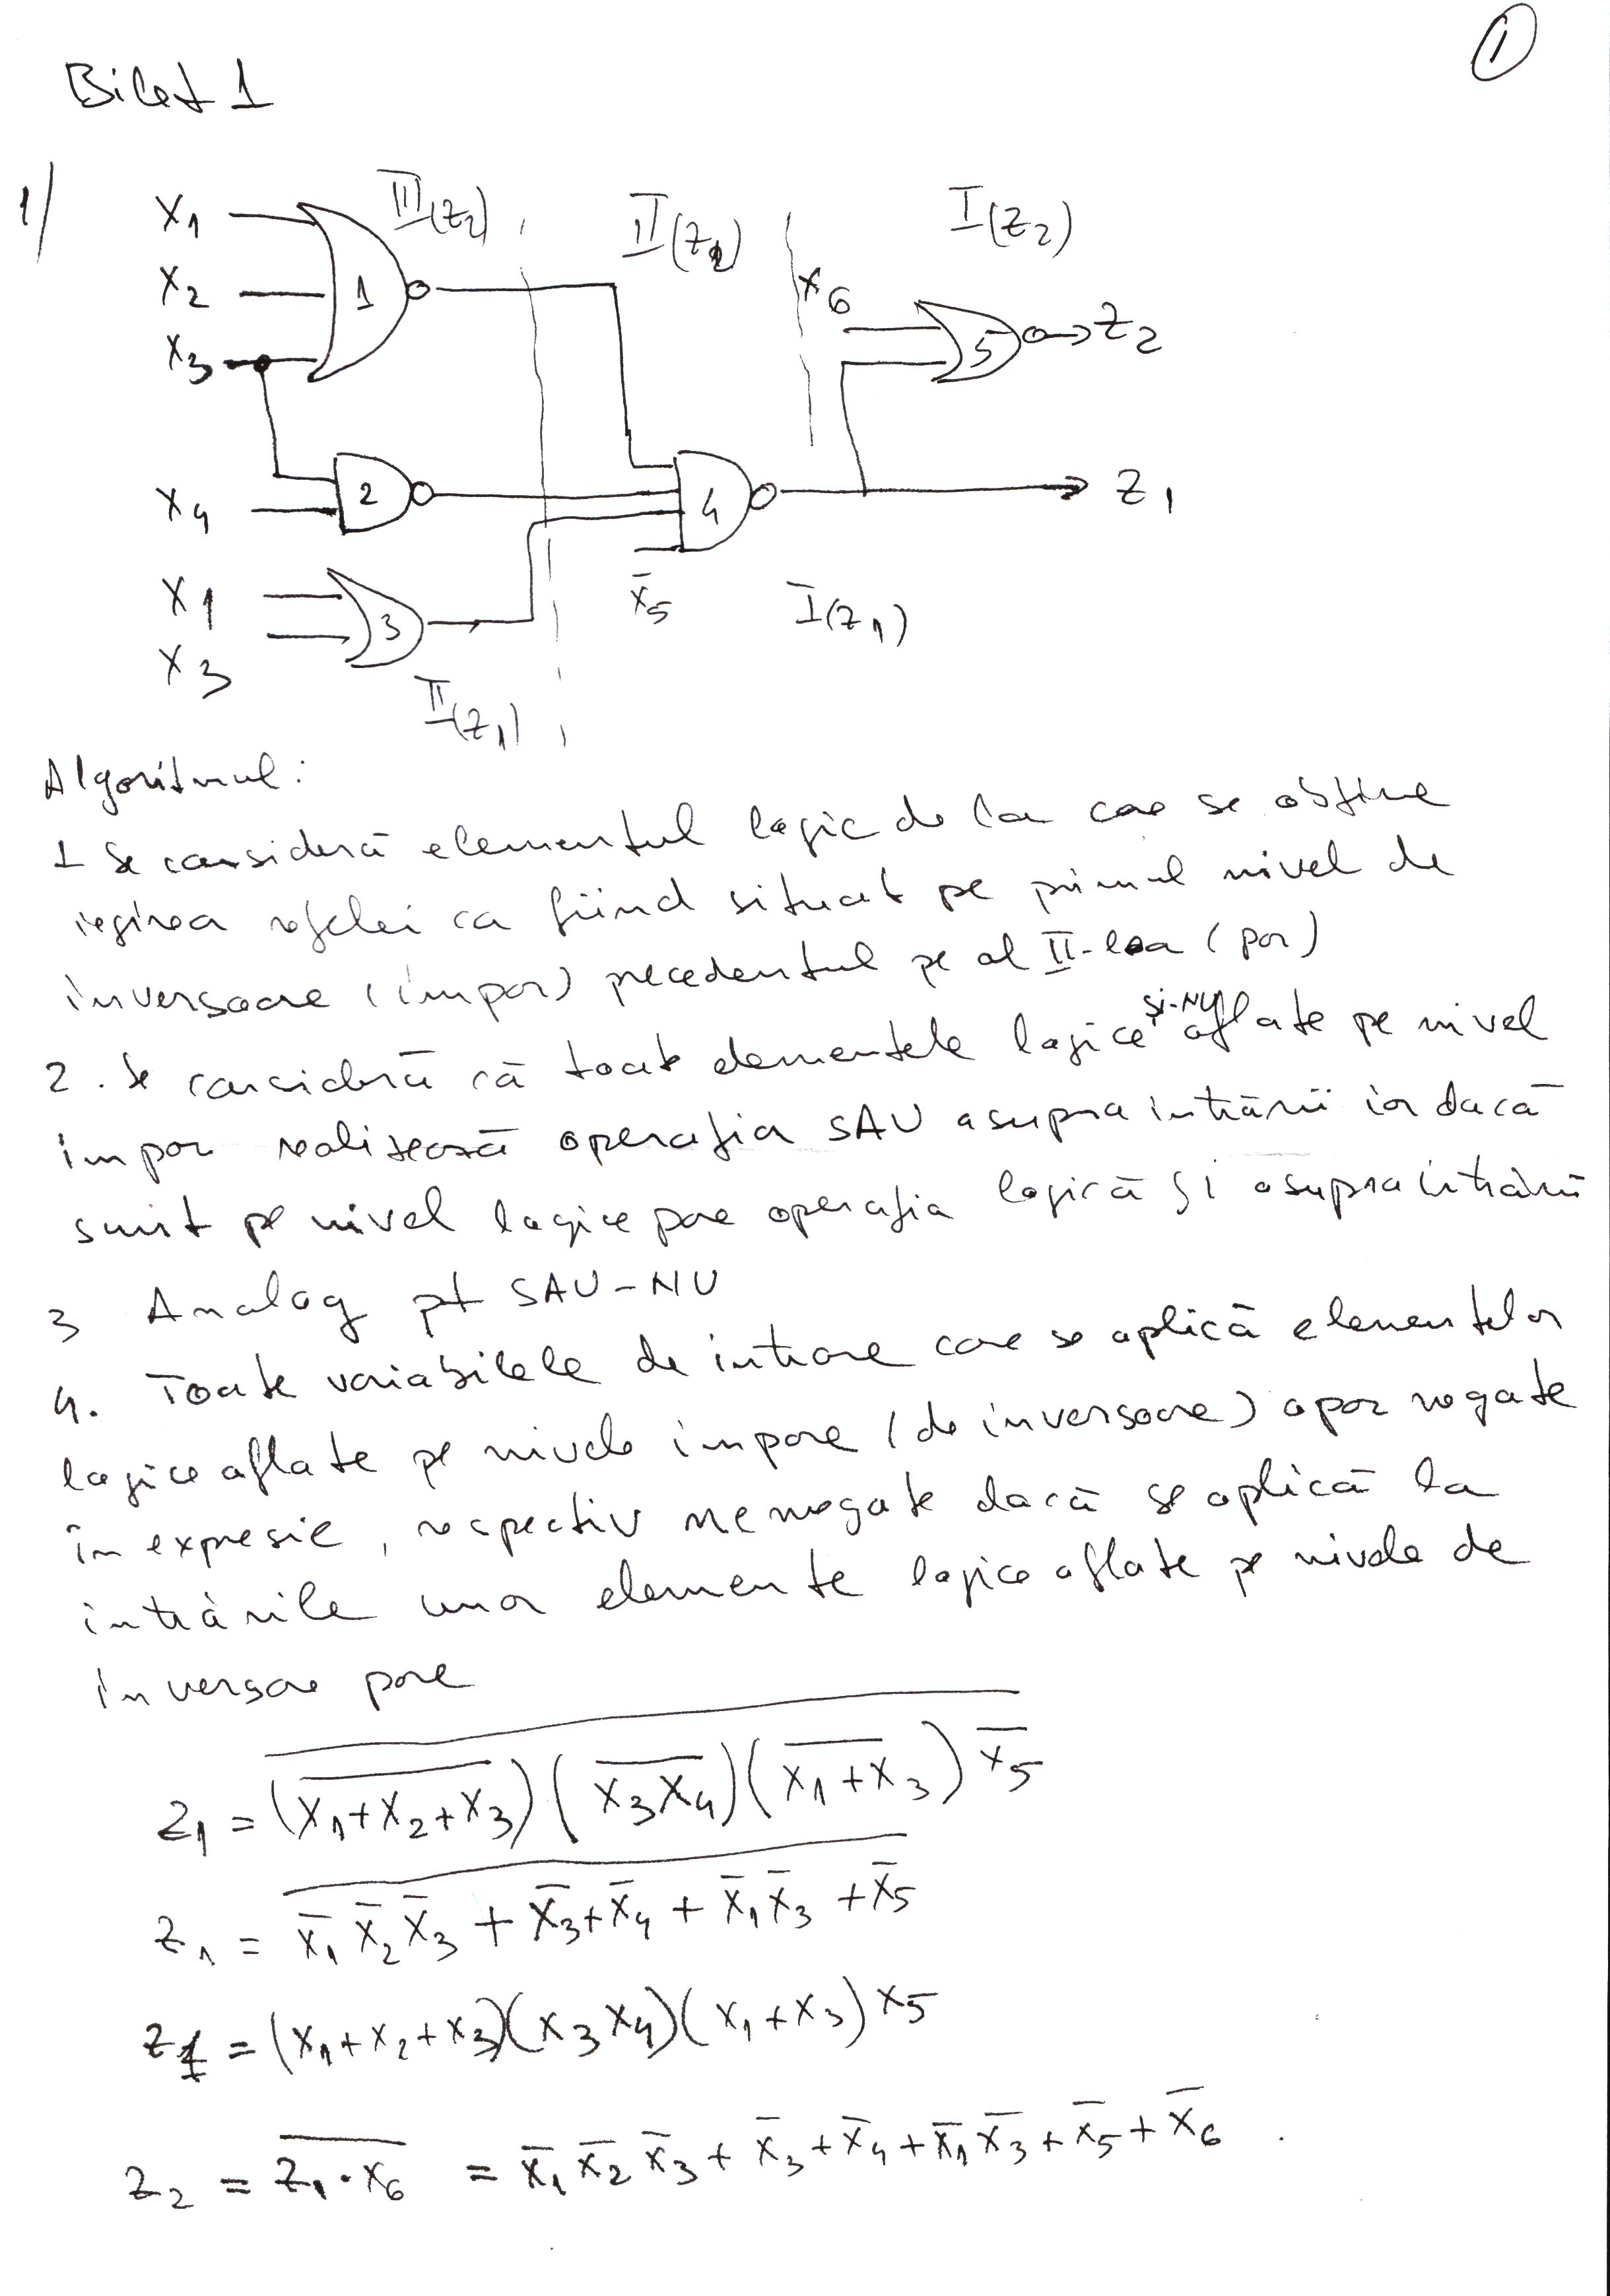 1
Bilet 1
1/
X1
X2
X3
X4
X1
X3
1
2
3
4
5
III(Z2)
II(Z2)
I(Z2)
x6
Z2
Z1
x̄5
I(Z1)
II(Z1)
Algoritmul:
1 Se consideră elementul logic de la care se obține
ieșirea rețelei ca fiind situat pe primul nivel de
inversoare (impar) precedentul pe al II-lea (par)
2. Se consideră că toate elementele logice și-NU aflate pe nivel
impar realizează operația SAU asupra intrării iar dacă
sunt pe nivel logice pare operația logică și asupra intrării
3 Analog pt SAU-NU
4. Toate variabilele de intrare care se aplică elementelor
logice aflate pe nivele impare (de inversoare) apar negate
în expresie, respectiv nenegate dacă se aplică la
intrările unor elemente logice aflate pe nivele de
inversare pare
Z1 = \overline{(\overline{X1+X2+X3})(\overline{X3X4})(\overline{X1+X3})\overline{X5}}
Z1 = \overline{x̄1 x̄2 x̄3 + x̄3+x̄4 + x̄1x̄3 + x̄5}
Z1 = (X1+X2+X3)(X3X4)(X1+X3)X5
Z2 = \overline{Z1·X6} = x̄1 x̄2 x̄3 + x̄3 + x̄4 + x̄1 x̄3 + x̄5 + x̄6 .